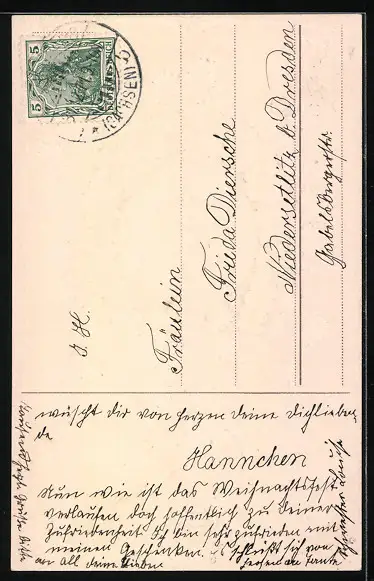 5 5
(SACHSEN)
z. H.
Fräulein
Frieda Diersche
Niedersetlitz b. Dresden
Gabelsbergerstr.
wüscht dir von herzen deine dichlieben
de
Hannchen
Nun wie ist das Weihnachtsfest
verlaufen doch hoffentlich zu deiner
Zufriedenheit Ich bin sehr zufrieden mit
meinen Geschenken. Es schließt sich von
an all deine lieben